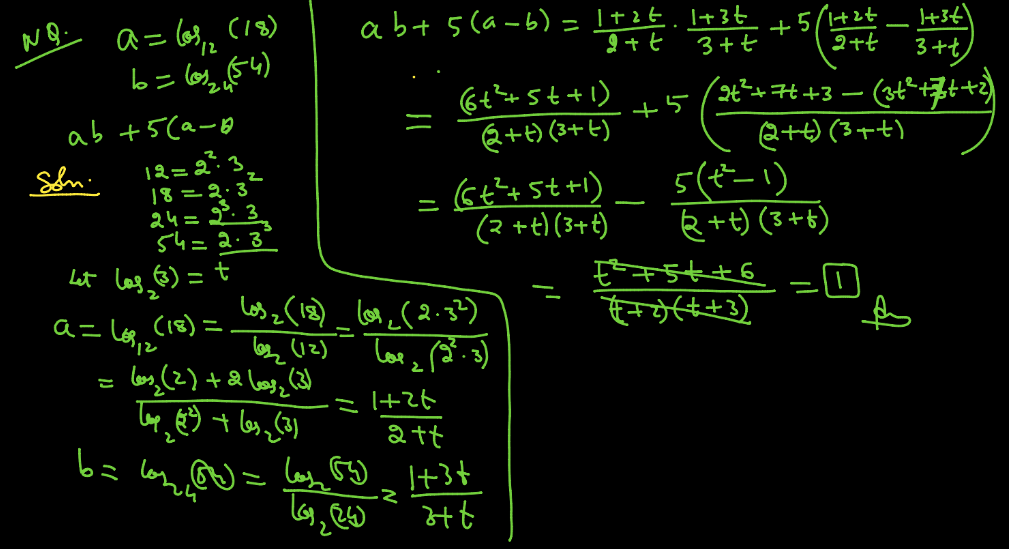 NQ. a = log₁₂(18)
b = log₂₄(54)
ab + 5(a-b)
Soln. 12 = 2². 3
18 = 2. 3²
24 = 2³. 3
54 = 2. 3³
Let log₂(3) = t
a = log₁₂(18) = log₂(18)/log₂(12) = log₂(2.3²)/log₂(2².3)
= (log₂(2) + 2log₂(3))/(log₂(2²) + log₂(3)) = (1+2t)/(2+t)
b = log₂₄(54) = log₂(54)/log₂(24) = (1+3t)/(3+t)
ab + 5(a-b) = (1+2t)/(2+t) . (1+3t)/(3+t) + 5((1+2t)/(2+t) - (1+3t)/(3+t))
= (6t²+5t+1)/((2+t)(3+t)) + 5((2t²+7t+3 - (3t²+7t+2))/((2+t)(3+t)))
= (6t²+5t+1)/((2+t)(3+t)) - 5(t²-1)/((2+t)(3+t))
= (t²+5t+6)/((t+2)(t+3)) = 1 Ans